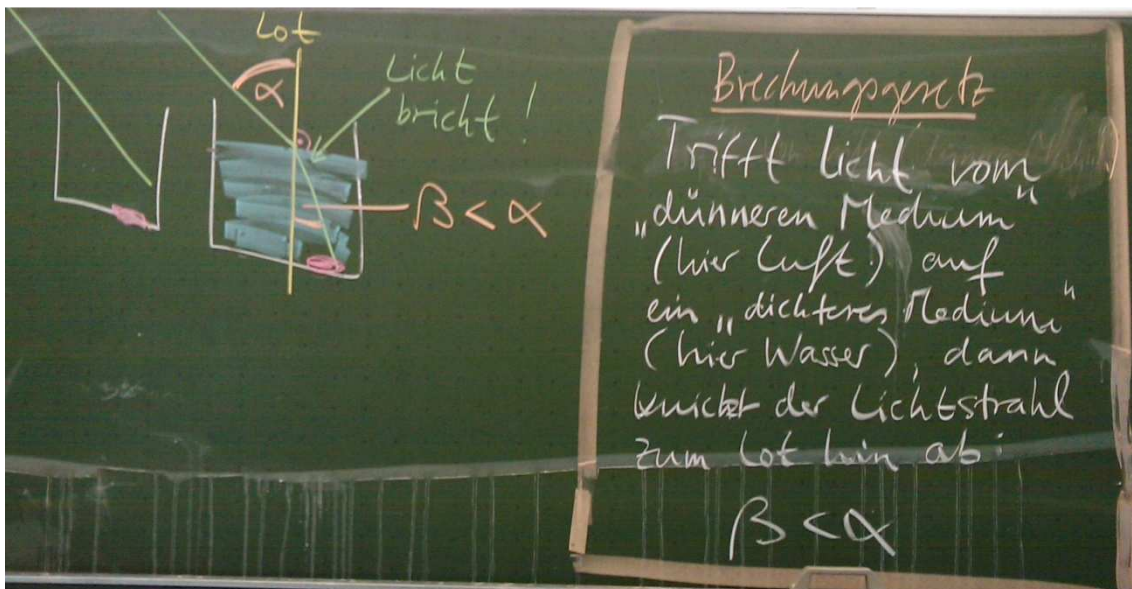 Lot
α
Licht
bricht!
β < α
Brechungsgesetz
Trifft Licht vom
„dünneren Medium“
(hier Luft!) auf
ein „dichteres Medium“
(hier Wasser), dann
knickt der Lichtstrahl
zum Lot hin ab:
β < α